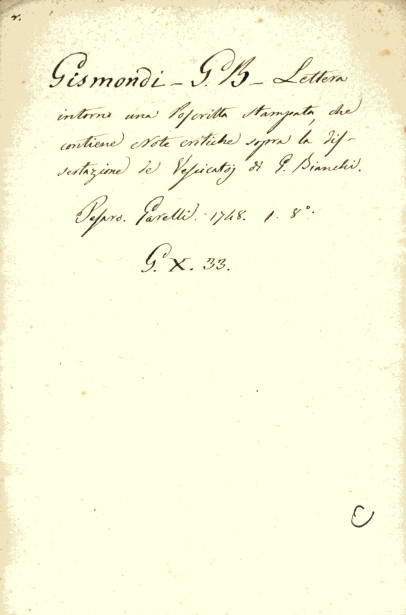 r.
Gismondi - G. B - Lettera
intorno una Poscritta stampata, che
contiene Note critiche sopra la dis-
sertazione de Vescicatoj di G. Bianchi.
Pesaro. Gavelli. 1748. 1. 8°.
G. X. 33.
C